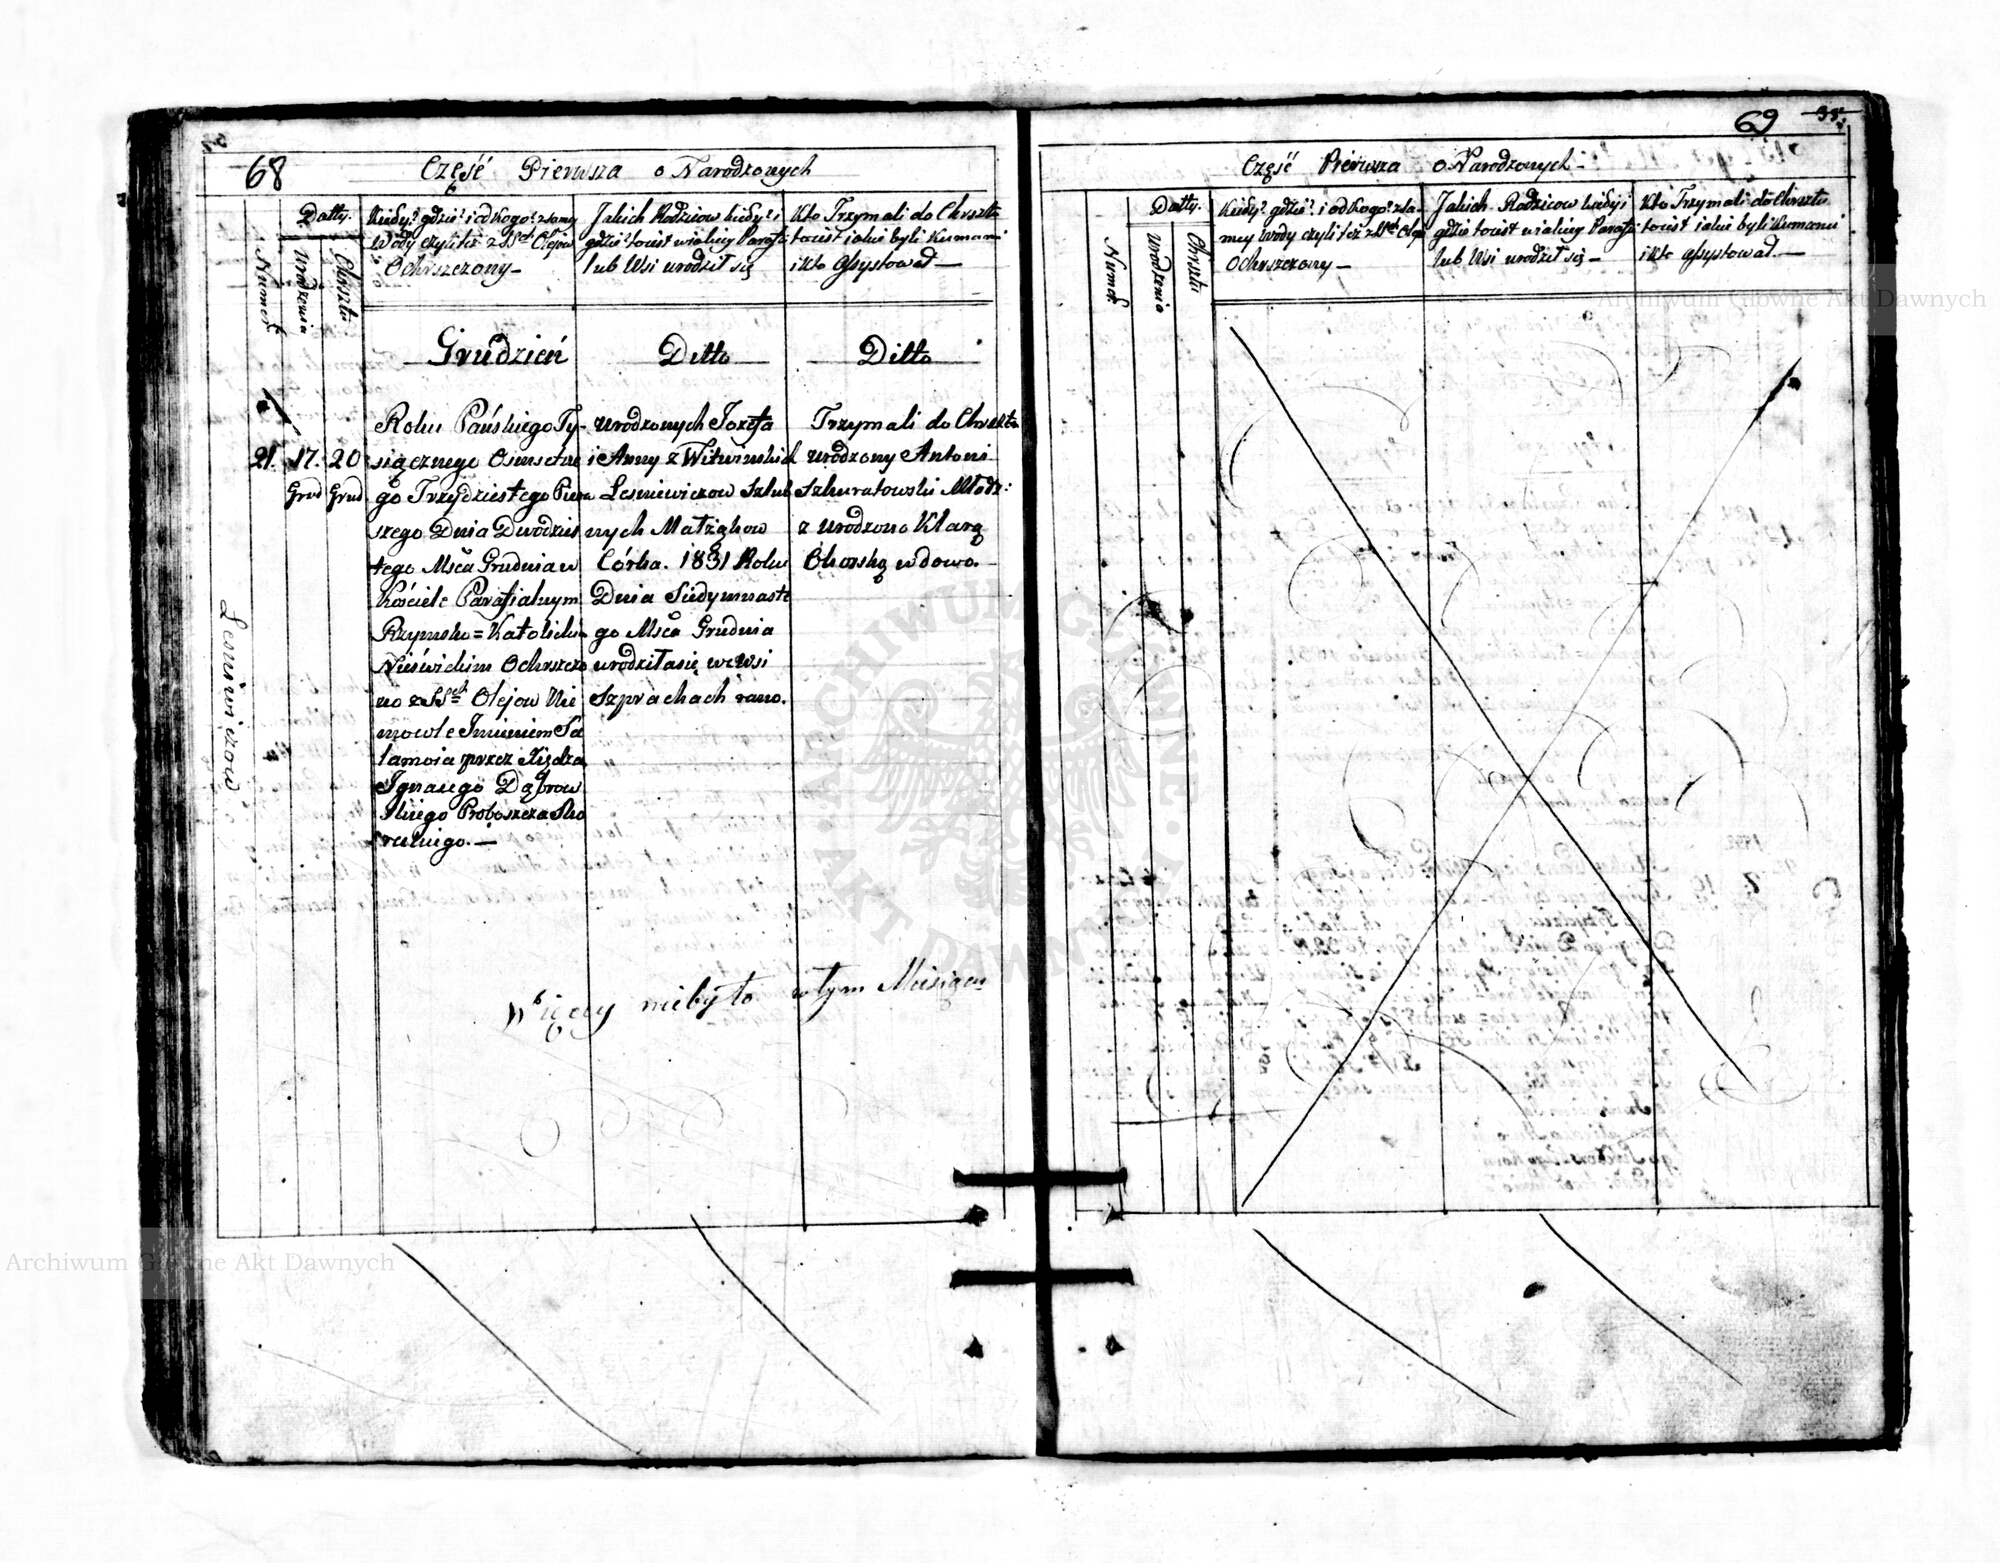 68
Część Pierwsza o Narodzonych
Datty.
Numer
Urodzenia
Chrztu
Kiedy? gdzie? i od kogo? z samy
Wody czyli też z SSch Olejow
Ochrszczony —
Jakich Rodzicow kiedy? i
gdzie? to iest w iakiey Parafii
lub Wsi urodził się
Kto Trzymali do Chrsztu
to iest iakie byli Kumami
i kto assystował —
Grudzień
Ditto
Ditto
21.
17.
Grud
20
Grud
Roku Pańskiego Ty-
siącznego Osmsetne
go Trzydziestego Pierw
szego Dnia Dwodzies
tego Msca Grudnia w
Kościele Parafialnym
Rzymsko=Katolickim
Nieświckim Ochrszczo
no z SSch Olejow Nie
mowle Imieniem Sa
lameia przez Xiędza
Ignacego Dąbrow
skiego Proboszcza Sko
reckiego. —
Urodzonych Jozefa
i Anny z Witwinskich
Lesniewiczow Szlub
nych Małżąkow
Córka. 1831 Roku
Dnia Siedymnaste
go Msca Grudnia
urodziła się we Wsi
Szprachach rano.
Trzymali do Chrsztu
Urodzony Antoni
Szkuratowski Młodz:
z Urodzono Klarą
Wdowo. —
Lesniewiczow
Więcey nie było w tym Miesięcu
69
35
Część Pierwsza o Narodzonych —
Datty.
Numer
Urodzenia
Chrsztu
Kiedy? gdzie? i od kogo? z sa-
mey Wody czyli też z SSch Oley
Ochrszczony —
Jakich Rodzicow kiedy i
gdzie to iest w iakiey Parafii
lub Wsi urodził się —
Kto Trzymali do Chrsztu
to iest iakie byli Kumami
i kto assystował. —
Archiwum Główne Akt Dawnych
Archiwum Główne Akt Dawnych
ARCHIWUM GŁÓWNE AKT DAWNYCH